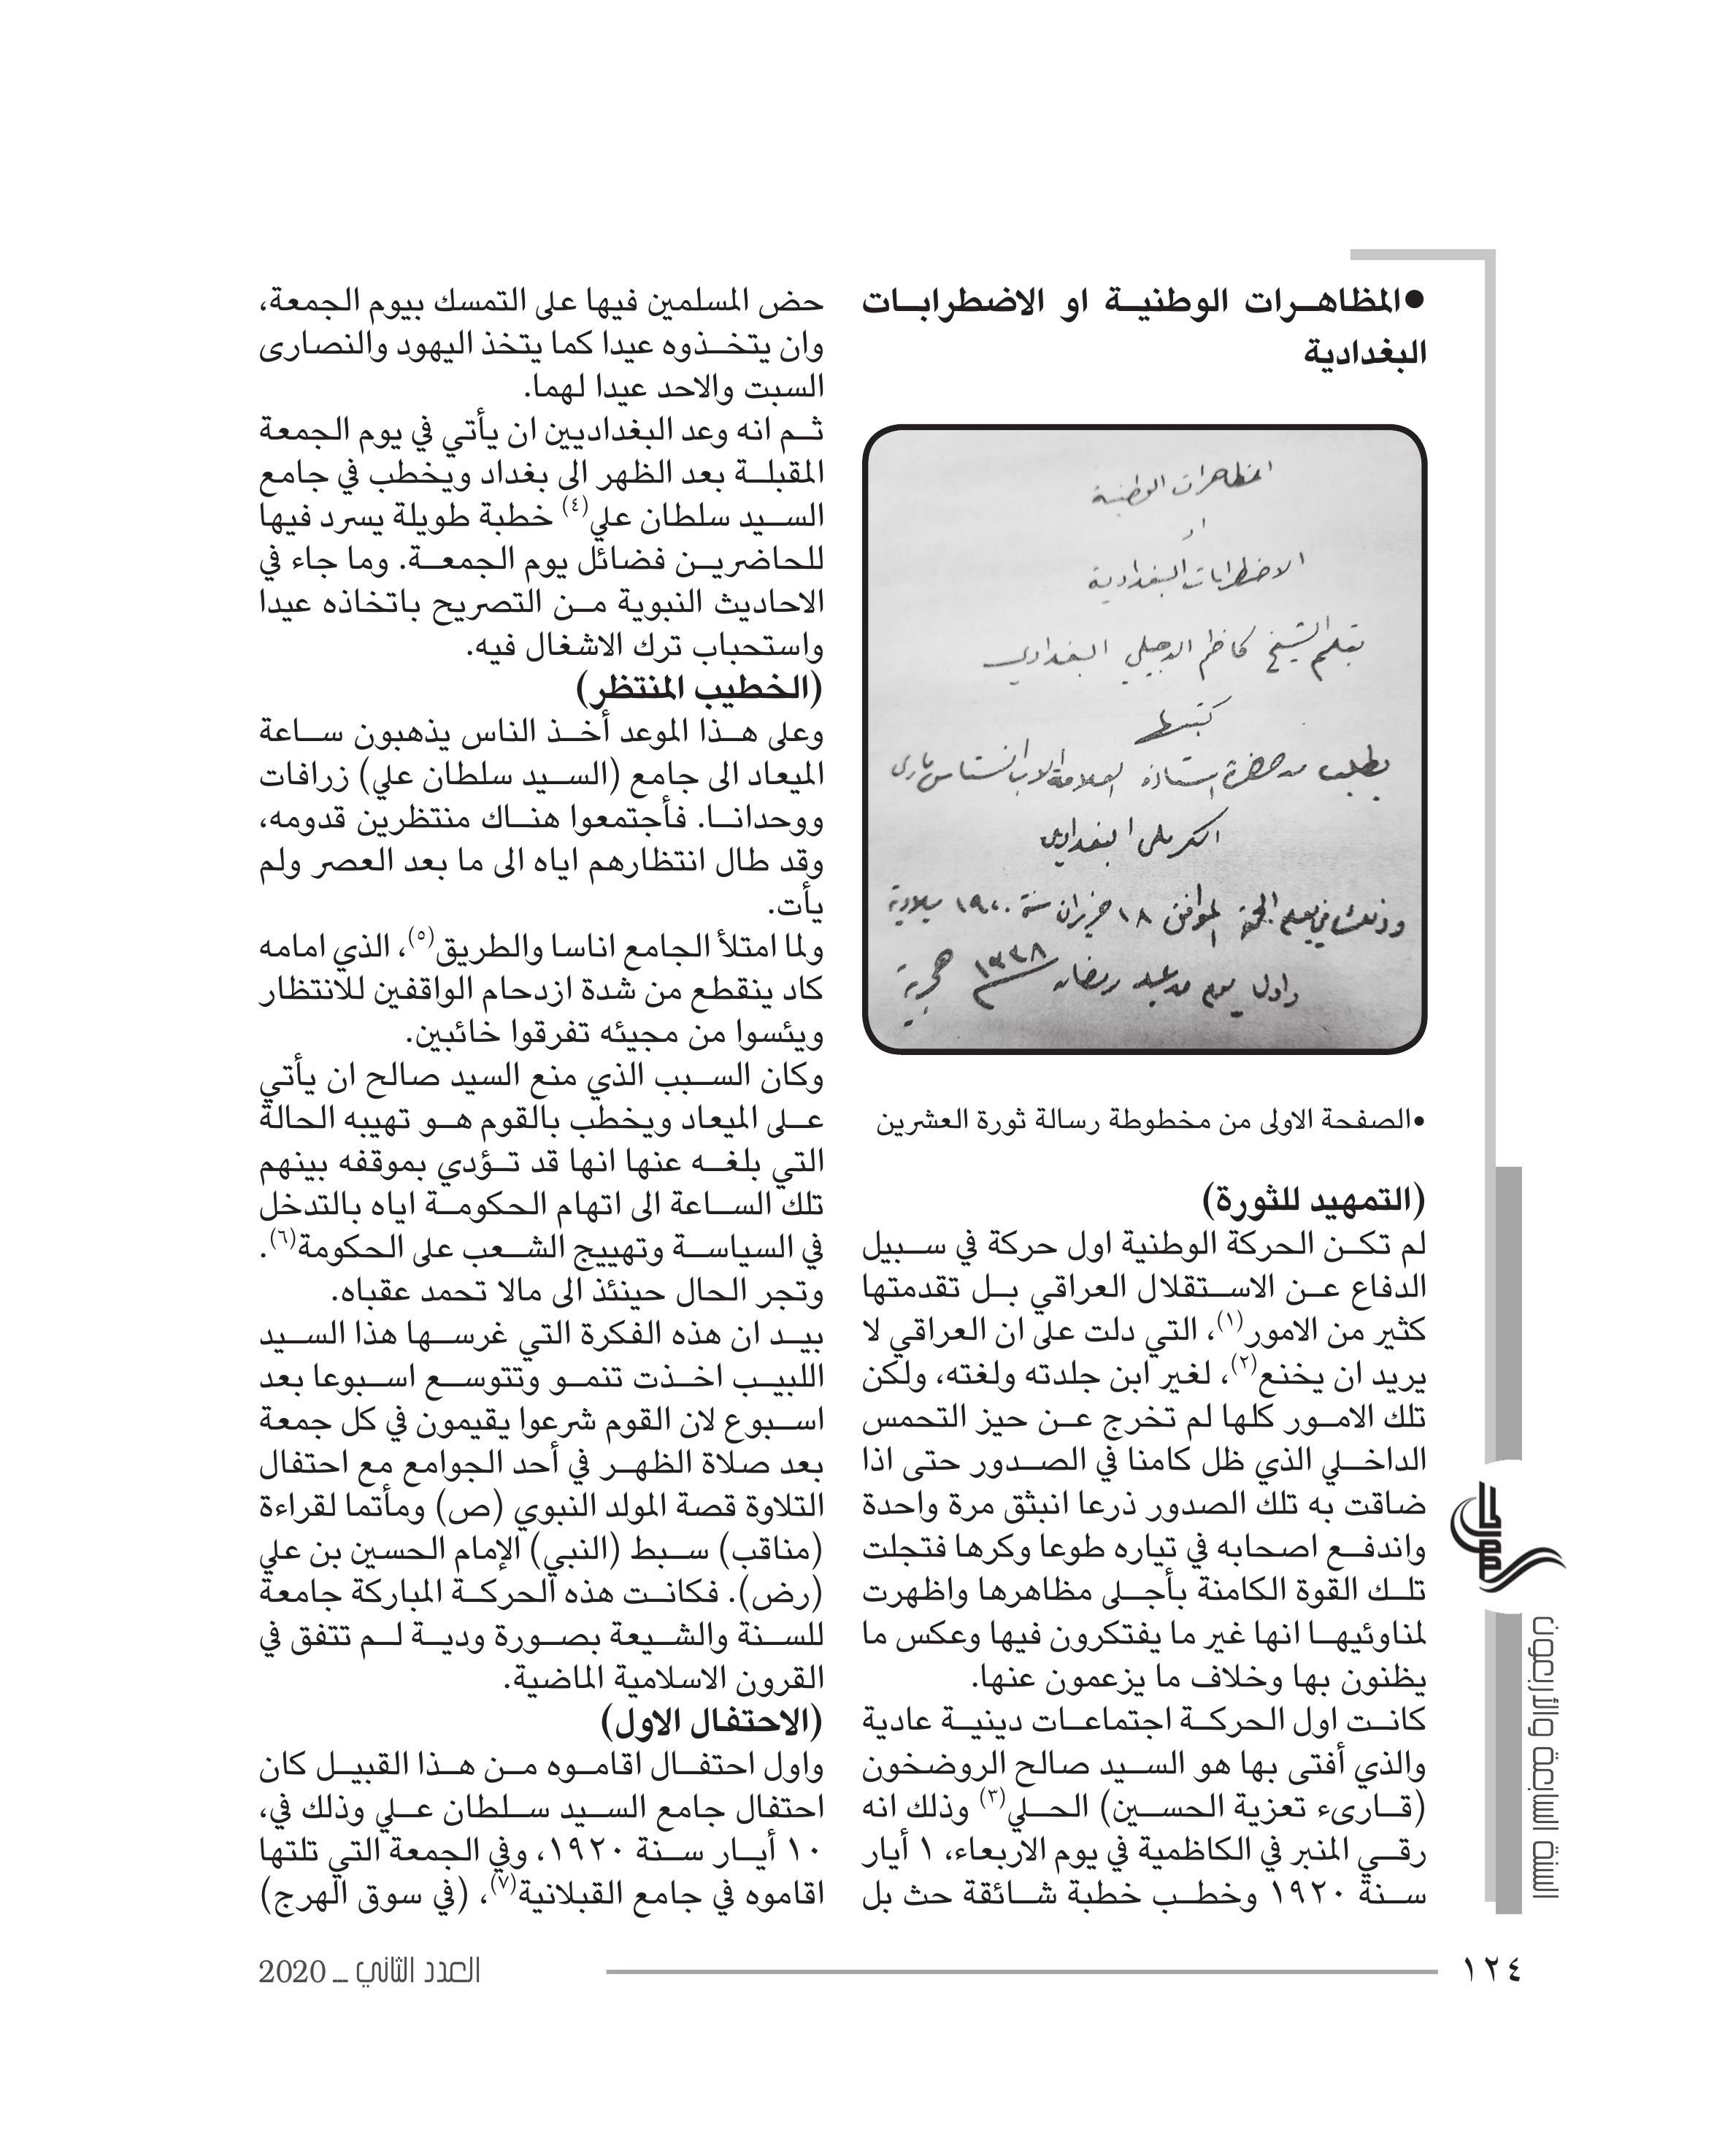 ●المظاهرات الوطنية او الاضطرابات
البغدادية
المظاهرات الوطنية
او
الاضطرابات البغدادية
بقلم الشيخ كاظم الدجيلي البغدادي
كتبها
بطلب من حضرة استاذه العلامة الاب انستاس ماري
الكرملي البغدادي
وذلك في يوم الجمعة الموافق ١٨ حزيران سنة ١٩٢٠ ميلادية
واول يوم من عيد رمضان ١٣٣٨ هجرية
•الصفحة الاولى من مخطوطة رسالة ثورة العشرين
(التمهيد للثورة)
لم تكن الحركة الوطنية اول حركة في سبيل
الدفاع عن الاستقلال العراقي بل تقدمتها
كثير من الامور(١)، التي دلت على ان العراقي لا
يريد ان يخنع(٢)، لغير ابن جلدته ولغته، ولكن
تلك الامور كلها لم تخرج عن حيز التحمس
الداخلي الذي ظل كامنا في الصدور حتى اذا
ضاقت به تلك الصدور ذرعا انبثق مرة واحدة
واندفع اصحابه في تياره طوعا وكرها فتجلت
تلك القوة الكامنة بأجلى مظاهرها واظهرت
لمناوئيها انها غير ما يفتكرون فيها وعكس ما
يظنون بها وخلاف ما يزعمون عنها.
كانت اول الحركة اجتماعات دينية عادية
والذي أفتى بها هو السيد صالح الروضخون
(قارىء تعزية الحسين) الحلي(٣) وذلك انه
رقي المنبر في الكاظمية في يوم الاربعاء، ١ أيار
سنة ١٩٢٠ وخطب خطبة شائقة حث بل
حض المسلمين فيها على التمسك بيوم الجمعة،
وان يتخذوه عيدا كما يتخذ اليهود والنصارى
السبت والاحد عيدا لهما.
ثم انه وعد البغداديين ان يأتي في يوم الجمعة
المقبلة بعد الظهر الى بغداد ويخطب في جامع
السيد سلطان علي(٤) خطبة طويلة يسرد فيها
للحاضرين فضائل يوم الجمعة. وما جاء في
الاحاديث النبوية من التصريح باتخاذه عيدا
واستحباب ترك الاشغال فيه.
(الخطيب المنتظر)
وعلى هذا الموعد أخذ الناس يذهبون ساعة
الميعاد الى جامع (السيد سلطان علي) زرافات
ووحدانا. فأجتمعوا هناك منتظرين قدومه،
وقد طال انتظارهم اياه الى ما بعد العصر ولم
يأت.
ولما امتلأ الجامع اناسا والطريق(٥)، الذي امامه
كاد ينقطع من شدة ازدحام الواقفين للانتظار
ويئسوا من مجيئه تفرقوا خائبين.
وكان السبب الذي منع السيد صالح ان يأتي
على الميعاد ويخطب بالقوم هو تهيبه الحالة
التي بلغه عنها انها قد تؤدي بموقفه بينهم
تلك الساعة الى اتهام الحكومة اياه بالتدخل
في السياسة وتهييج الشعب على الحكومة(٦).
وتجر الحال حينئذ الى مالا تحمد عقباه.
بيد ان هذه الفكرة التي غرسها هذا السيد
اللبيب اخذت تنمو وتتوسع اسبوعا بعد
اسبوع لان القوم شرعوا يقيمون في كل جمعة
بعد صلاة الظهر في أحد الجوامع مع احتفال
التلاوة قصة المولد النبوي (ص) ومأتما لقراءة
(مناقب) سبط (النبي) الإمام الحسين بن علي
(رض). فكانت هذه الحركة المباركة جامعة
للسنة والشيعة بصورة ودية لم تتفق في
القرون الاسلامية الماضية.
(الاحتفال الاول)
واول احتفال اقاموه من هذا القبيل كان
احتفال جامع السيد سلطان علي وذلك في،
١٠ أيار سنة ١٩٢٠، وفي الجمعة التي تلتها
اقاموه في جامع القبلانية(٧)، (في سوق الهرج)
السنة السابعة والأربعون
١٢٤
العدد الثاني ــ 2020